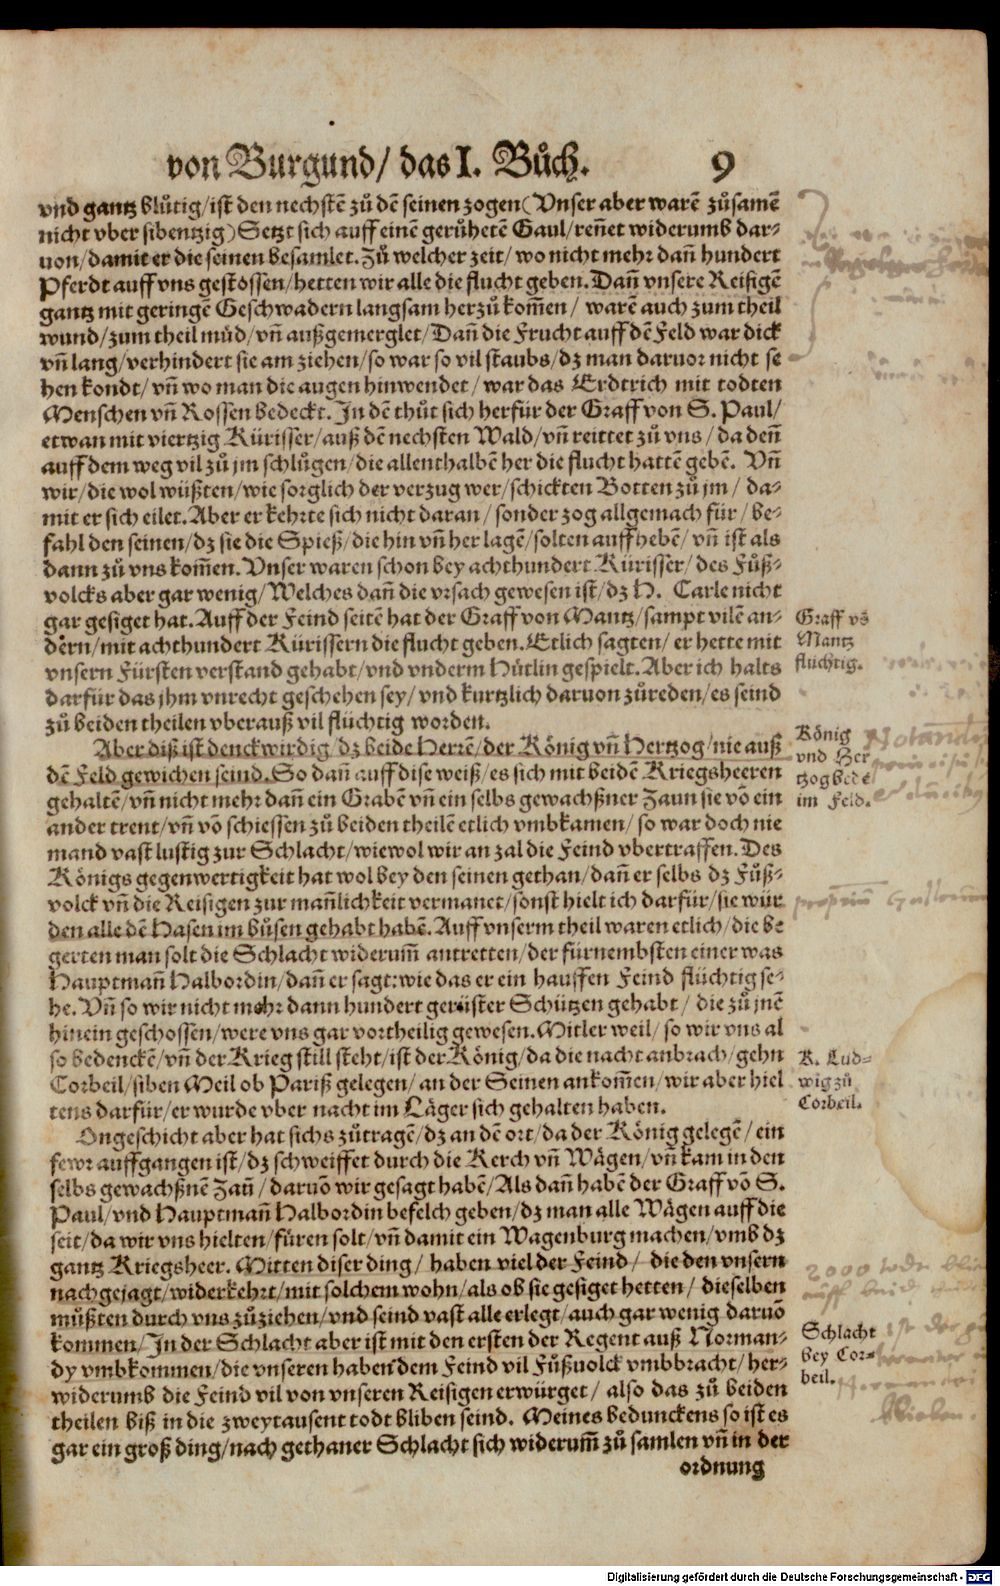 von Burgund/ das I. Bůch. 9
vnd gantz blůtig/ist den nechstẽ zů dẽ seinen zogen (Vnser aber warẽ zůsamẽ
nicht vber sibentzig) Setzt sich auff einẽ gerůhetẽ Gaul/reñet widerumb dar-
uon/damit er die seinen besamlet. Zů welcher zeit/ wo nicht mehr dañ hundert
Pferdt auff vns gestossen/hetten wir alle die flucht geben. Dañ vnsere Reisigẽ
gantz mit geringẽ Geschwadern langsam herzů kom̃en/ warẽ auch zum theil
wund/zum theil můd/ vñ außgemerglet/Dañ die Frucht auff dẽ Feld war dick
vñ lang/verhindert sie am ziehen/so war so vil staubs/dz man daruor nicht se
hen kondt/ vñ wo man die augen hinwendet/ war das Erdtrich mit todten
Menschen vñ Rossen bedeckt. In dẽ thůt sich herfür der Graff von S. Paul/
etwan mit viertzig Kürisser/auß dẽ nechsten Wald/vñ reittet zů vns/da deñ
auff dem weg vil zů jm schlůgen/die allenthalbẽ her die flucht hattẽ gebẽ. Vñ
wir/die wol wüßten/wie sorglich der verzug wer/schickten Botten zů jm/ da-
mit er sich eilet. Aber er kehrte sich nicht daran/sonder zog allgemach für/ be-
fahl den seinen/dz sie die Spieß/die hin vñ her lagẽ/solten auffhebẽ/ vñ ist als
dann zů vns kom̃en. Vnser waren schon bey achthundert Kürisser/des Fůß-
volcks aber gar wenig/Welches dañ die vrsach gewesen ist/dz H. Carle nicht
gar gesiget hat. Auff der Feind seitẽ hat der Graff von Mantz/sampt vilẽ an-
dern/mit achthundert Kürissern die flucht geben. Etlich sagten/er hette mit
vnsern Fürsten verstand gehabt/vnd vnderm Hütlin gespielt. Aber ich halts
darfür das jhm vnrecht geschehen sey/vnd kurtzlich daruon zůreden/es seind
zů beiden theilen vberauß vil flüchtig worden.
Graff võ
Mantz
flüchtig.
Aber diß ist denckwirdig/dz beide Herrẽ/der König vñ Hertzog/nie auß
dẽ Feld gewichen seind. So dañ auff dise weiß/es sich mit beidẽ Kriegsheeren
gehaltẽ/vñ nicht mehr dañ ein Grabẽ vñ ein selbs gewachßner Zaun sie võ ein
ander trent/vñ võ schiessen zů beiden theilẽ etlich vmbkamen/ so war doch nie
mand vast lustig zur Schlacht/wiewol wir an zal die Feind vbertraffen. Des
Königs gegenwertigkeit hat wol bey den seinen gethan/dañ er selbs dz Fůß-
volck vñ die Reisigen zur mañlichkeit vermanet/sonst hielt ich darfür/sie wür
den alle dẽ Hasen im bůsen gehabt habẽ. Auff vnserm theil waren etlich/die be
gerten man solt die Schlacht widerum̃ antretten/der fürnembsten einer was
Hauptmañ Halbordin/dañ er sagt: wie das er ein hauffen Feind flüchtig se-
he. Vñ so wir nicht mehr dann hundert gerüster Schützen gehabt/ die zů jnẽ
hinein geschossen/were vns gar vortheilig gewesen. Mitler weil/ so wir vns al
so bedenckẽ/vñ der Krieg still steht/ist der König/da die nacht anbrach/gehn
Corbeil/siben Meil ob Pariß gelegen/ an der Seinen ankom̃en/wir aber hiel
tens darfür/er wurde vber nacht im Läger sich gehalten haben.
König
vnd Her
tzog bedẽ
im Feld.
Notand
K. Lud-
wig zů
Corbeil.
Ongeschicht aber hat sichs zůtragẽ/dz an dẽ ort/da der König gelegẽ/ ein
fewr auffgangen ist/dz schweiffet durch die Kerch vñ Wägen/vñ kam in den
selbs gewachßnẽ Zañ/ daruõ wir gesagt habẽ/Als dañ habẽ der Graff võ S.
Paul/vnd Hauptmañ Halbordin befelch geben/dz man alle Wägen auff die
seit/da wir vns hielten/füren solt/vñ damit ein Wagenburg machen/vmb dz
gantz Kriegsheer. Mitten diser ding/ haben viel der Feind/ die den vnsern
nachgejagt/widerkehrt/mit solchem wohn/als ob sie gesiget hetten/ dieselben
můßten durch vns zůziehen/vnd seind vast alle erlegt/auch gar wenig daruõ
kommen/In der Schlacht aber ist mit den ersten der Regent auß Norman-
dy vmbkommen/die vnseren haben dem Feind vil Fůßuolck vmbbracht/her-
widerumb die Feind vil von vnseren Reisigen erwürget/ also das zů beiden
theilen biß in die zweytausent todt bliben seind. Meines bedunckens so ist es
gar ein groß ding/nach gethaner Schlacht sich widerum̃ zů samlen vñ in der
ordnung
2000
Schlacht
bey Cor-
beil.
Digitalisierung gefördert durch die Deutsche Forschungsgemeinschaft - DFG